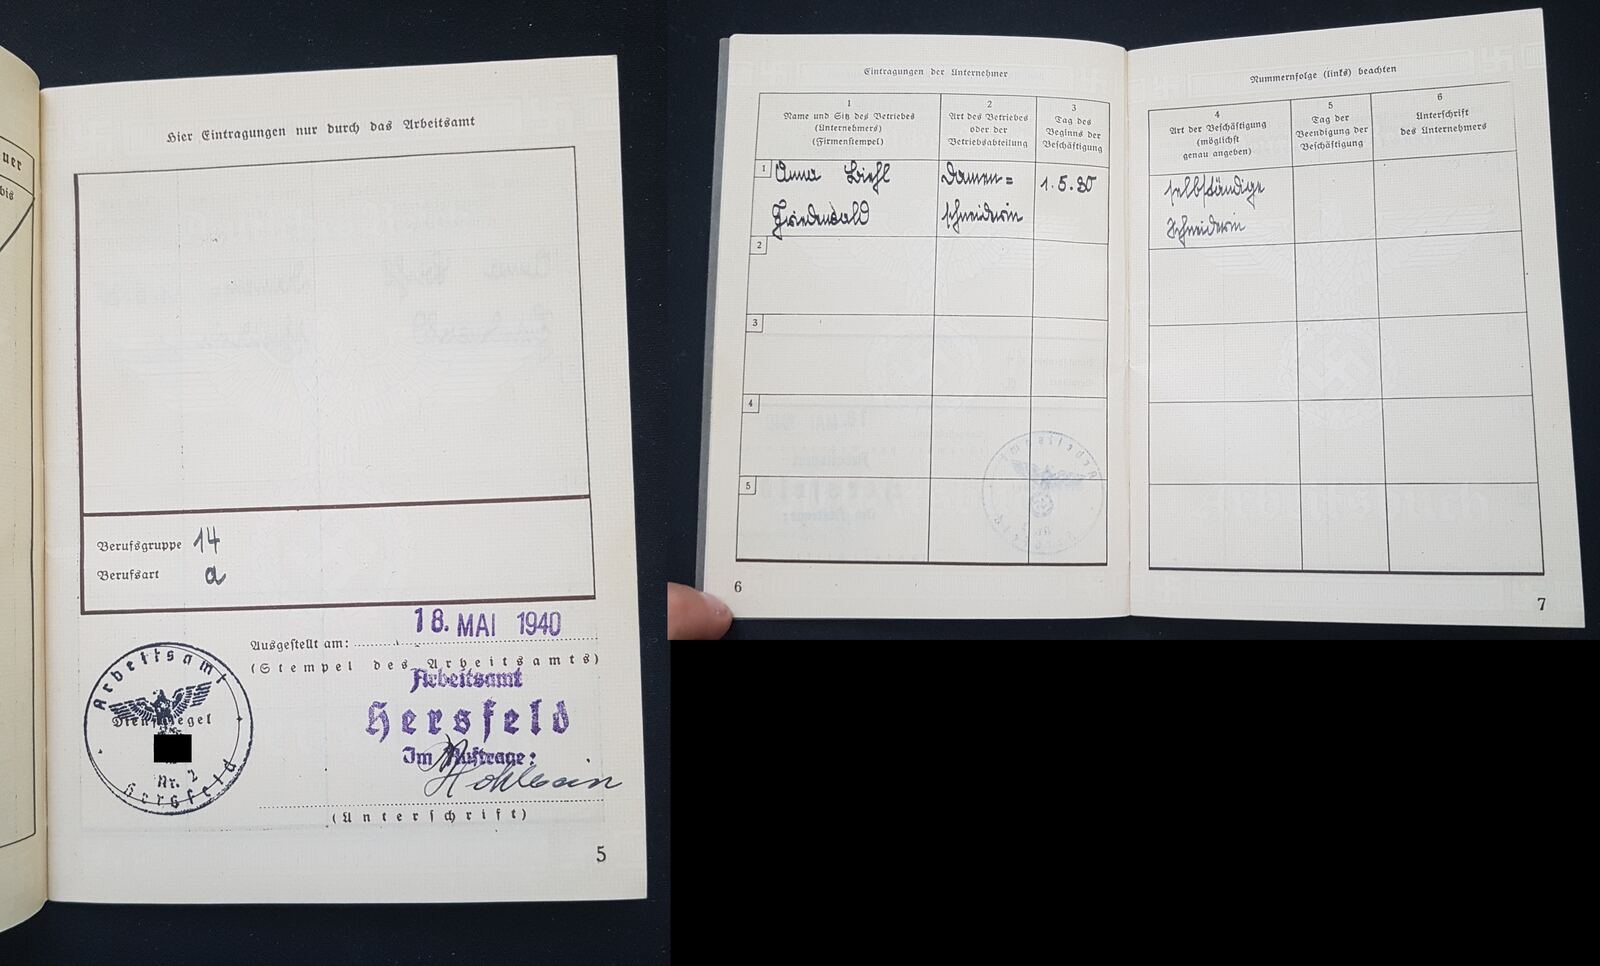 uer
bis
Hier Eintragungen nur durch das Arbeitsamt
Berufsgruppe 14
Berufsart a
Ausgestellt am: 18. MAI 1940
(Stempel des Arbeitsamts)
Arbeitsamt
Hersfeld
Im Auftrage:
(Unterschrift)
Arbeitsamt
Dienstsiegel
Nr. 2
Hersfeld
5
Eintragungen der Unternehmer
1
Name und Sitz des Betriebes
(Unternehmers)
(Firmenstempel)
2
Art des Betriebes
oder der
Betriebsabteilung
3
Tag des
Beginns der
Beschäftigung
1 Anna Biehl
Friedewald
Damen=
schneiderin
1.5.30
2
3
4
5
6
Nummernfolge (links) beachten
4
Art der Beschäftigung
(möglichst
genau angeben)
5
Tag der
Beendigung der
Beschäftigung
6
Unterschrift
des Unternehmers
selbständige
Schneiderin
7